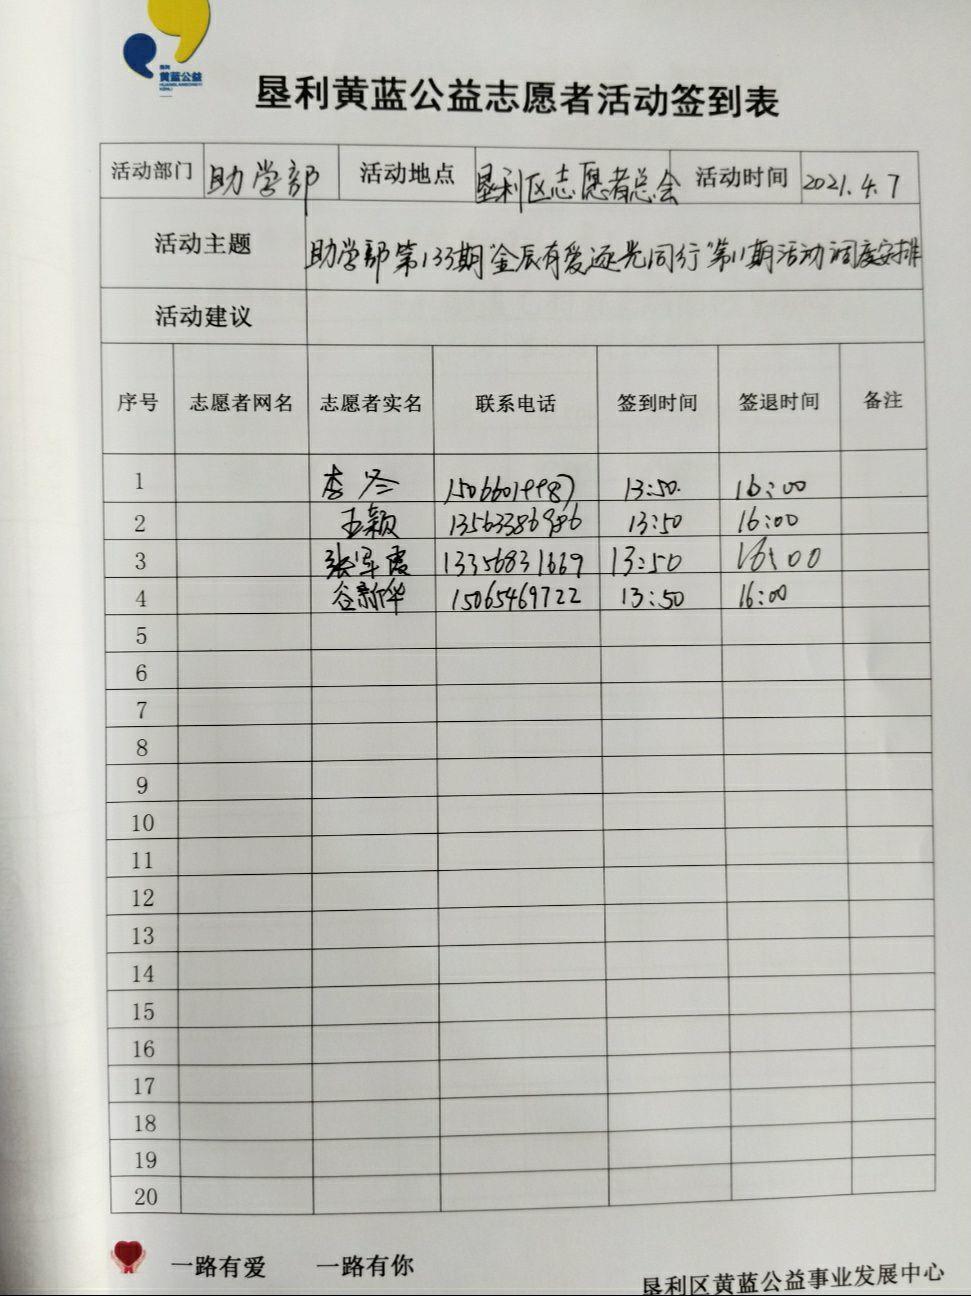 垦利
黄蓝公益
垦利黄蓝公益志愿者活动签到表
活动部门 助学部 活动地点 垦利区志愿者总会 活动时间 2021.4.7
活动主题 助学部第133期“金辰有爱逐光同行”第11期活动调度安排
活动建议
序号 志愿者网名 志愿者实名 联系电话 签到时间 签退时间 备注
1 李 13:50 16:00
2 王颖 13563386986 13:50 16:00
3 张军霞 13356831669 13:50 16:00
4 谷新华 15065469722 13:50 16:00
5
6
7
8
9
10
11
12
13
14
15
16
17
18
19
20
一路有爱 一路有你
垦利区黄蓝公益事业发展中心